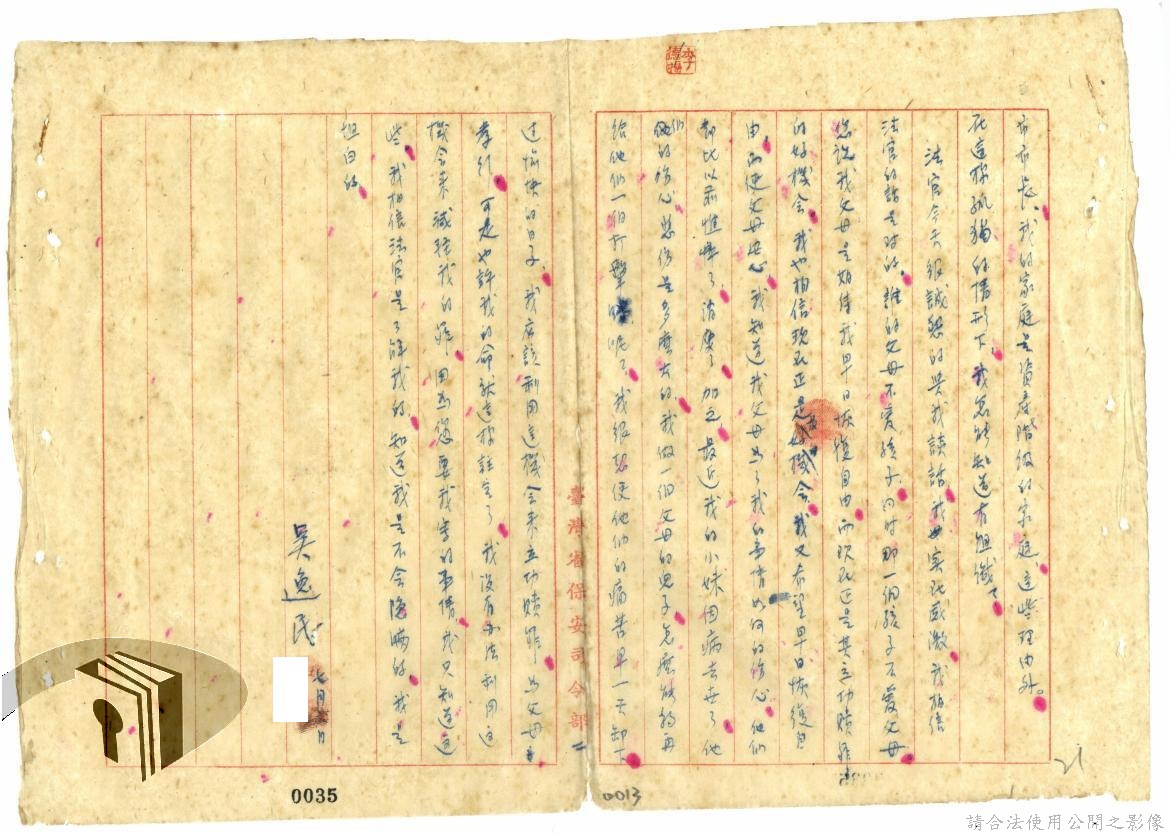 市市長、我的家庭是資產階級的家庭、這些理由外。
在這樣孤獨的情形下、我怎能知道有組織？
法官今天很誠懇的與我談話、我實在感激、我相信
法官的話是對的、誰的父母不愛孩子、同時那一個孩子不愛父母
您說我父母是期待我早日恢復自由、而現在正是其立功贖罪
的好機會、我也相信現在正是好機會、我又希望早日恢復自
由、而使父母安心、我知道我父母為了我的事情如何的傷心、他們
都比以前憔悴了、消瘦了、加之最近我的小妹因病去世了、他
們的傷心悲傷是多麼大的、我做一個父母的兒子怎麼能夠再
給他們一個打擊呢？、我很想使他們的痛苦早一天卸下
過愉快的日子、我應該利用這機會來立功贖罪、為父母
孝行、可是也許我的命就這樣註定了、我沒有辦法利用這
機會來減輕我的罪、因為您要我寫的事情、我只知道這
些、我相信法官是了解我的、知道我是不會隱瞞的、我是
坦白的、
吳逸民
七月 日
臺灣省保安司令部
0035
0013
21
請合法使用公開之影像